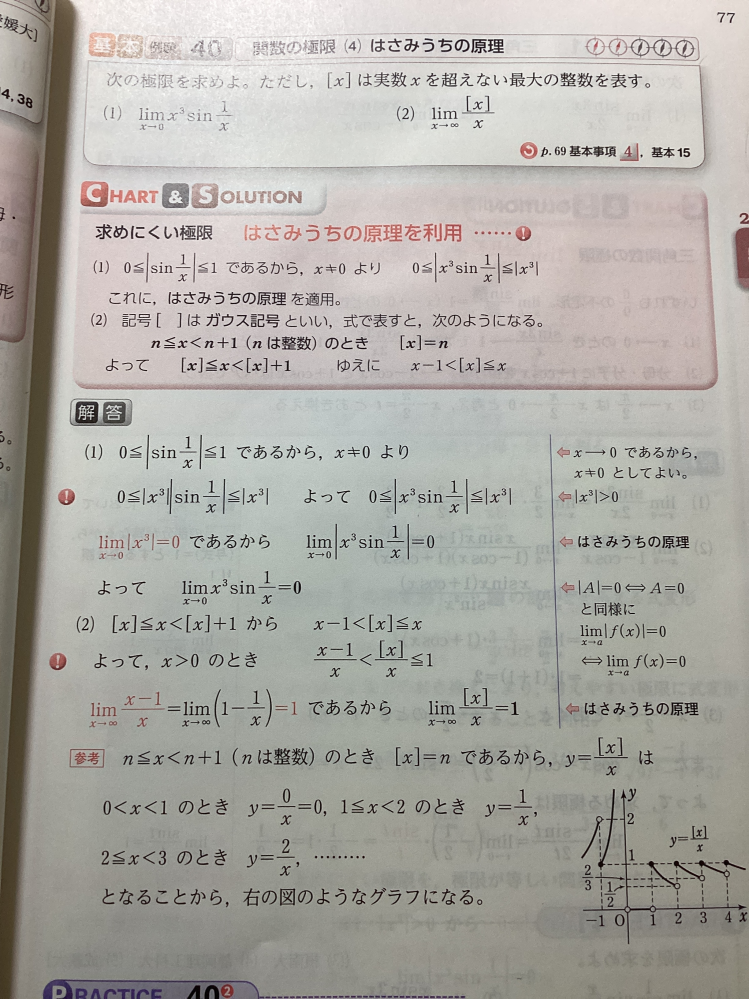 77
媛大]
4, 38
基本 例題 40 関数の極限 (4) はさみうちの原理
次の極限を求めよ。ただし，[x] は実数 x を超えない最大の整数を表す。
(1) lim_{x→0} x³ sin 1/x (2) lim_{x→∞} [x]/x
p. 69 基本事項 4 , 基本 15
CHART & SOLUTION
求めにくい極限 はさみうちの原理を利用 ……!
(1) 0≦|sin 1/x|≦1 であるから，x≠0 より 0≦|x³ sin 1/x|≦|x³|
これに，はさみうちの原理 を適用。
(2) 記号 [ ] は ガウス記号 といい，式で表すと，次のようになる。
n≦x<n+1 (n は整数) のとき [x]=n
よって [x]≦x<[x]+1 ゆえに x−1<[x]≦x
解答
(1) 0≦|sin 1/x|≦1 であるから，x≠0 より
⇦ x→0 であるから，
x≠0 としてよい。
! 0≦|x³||sin 1/x|≦|x³| よって 0≦|x³ sin 1/x|≦|x³| ⇦ |x³|>0
lim_{x→0} |x³|=0 であるから lim_{x→0} |x³ sin 1/x|=0 ⇦ はさみうちの原理
よって lim_{x→0} x³ sin 1/x=0 ⇦ |A|=0 ⟺ A=0
と同様に
(2) [x]≦x<[x]+1 から x−1<[x]≦x lim_{x→a} |f(x)|=0
! よって，x>0 のとき (x−1)/x<[x]/x≦1 ⟺ lim_{x→a} f(x)=0
lim_{x→∞} (x−1)/x=lim_{x→∞} (1−1/x)=1 であるから lim_{x→∞} [x]/x=1 ⇦ はさみうちの原理
参考 n≦x<n+1 (n は整数) のとき [x]=n であるから，y=[x]/x は
0<x<1 のとき y=0/x=0, 1≦x<2 のとき y=1/x,
2≦x<3 のとき y=2/x, ………
となることから，右の図のようなグラフになる。
y
2
y=[x]/x
1
2/3
1/2
−1 O 1 2 3 4 x
PRACTICE 40②